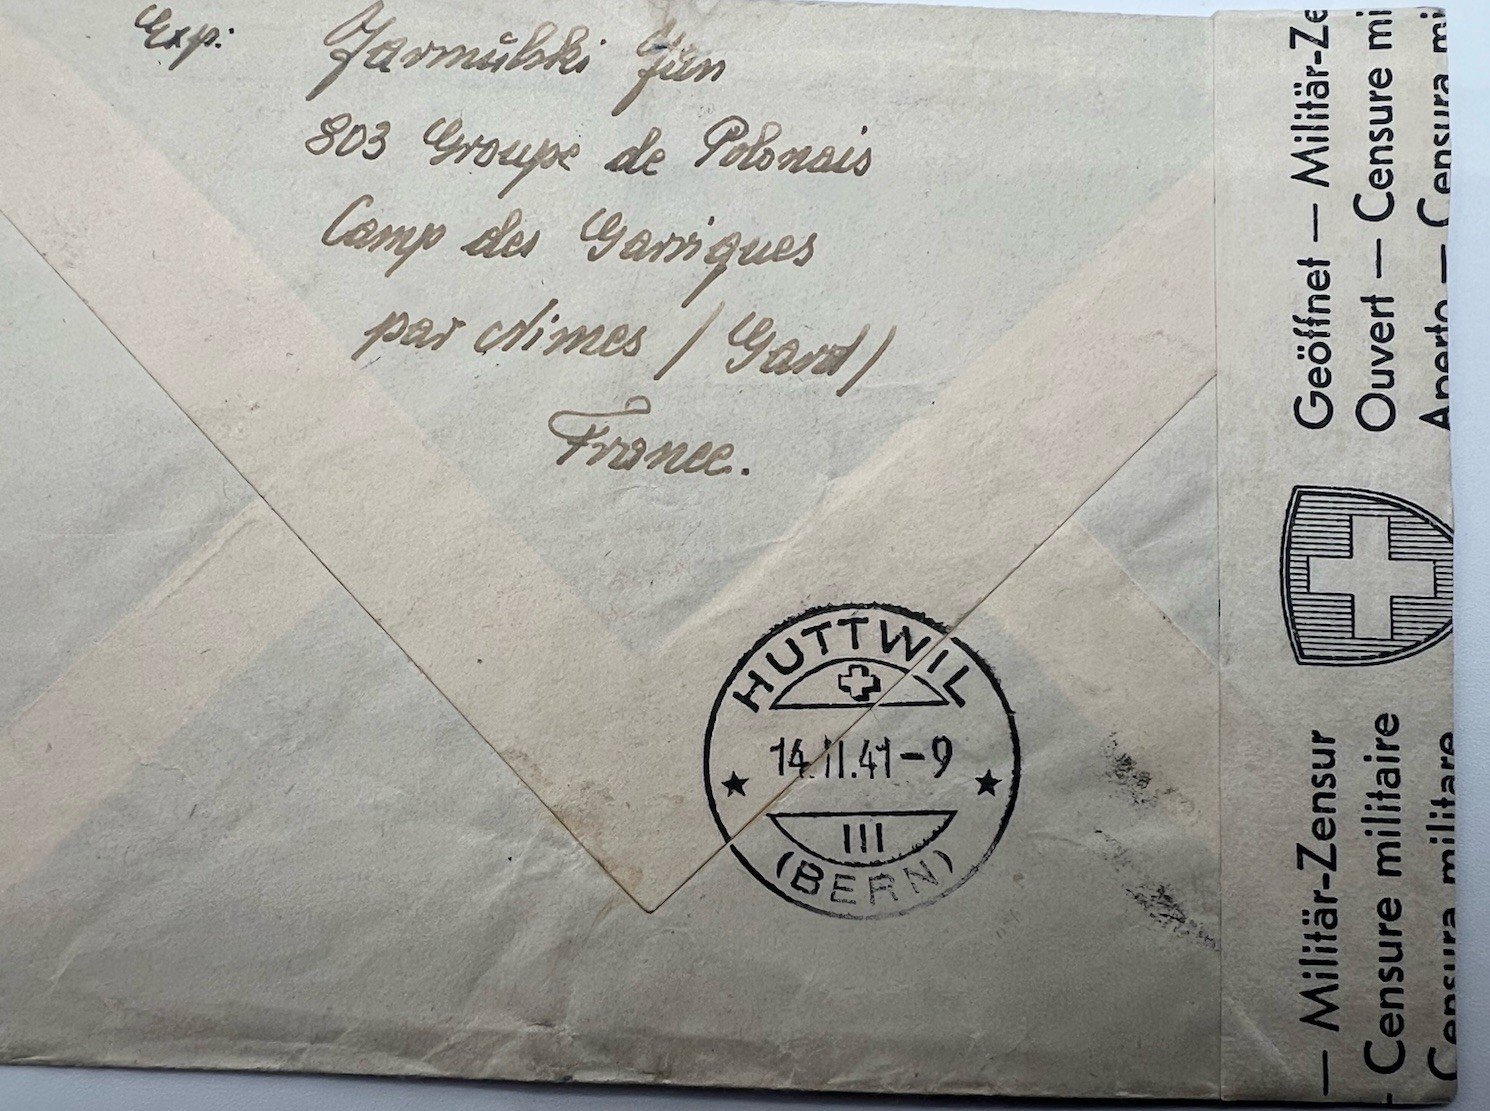 Exp: Jarmulski Jan
803 Groupe de Polonais
Camp des Garrigues
par Nimes / Gard /
France.
HUTTWIL
14.II.41-9
III
(BERN)
Geöffnet — Militär-Ze
Ouvert — Censure mi
Aperto — Censura mi
— Militär-Zensur
— Censure militaire
Censura militare